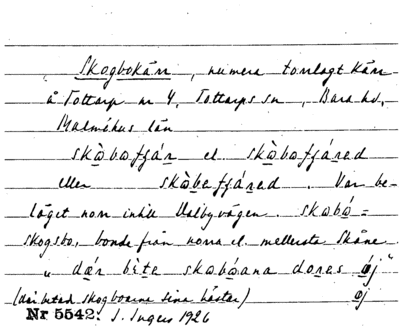 Skogbokärr, numera torrlagt kärr
å Tottarp nr 4, Tottarps sn, Bara hd,
Malmöhus län
skòbofjár el. skòbofjáred
eller skòbefjáred. Var be-
läget norr intill Dalbyvägen. skobó =
skogsbo, bonde från norra el. mellersta Skåne.
"där bète skobóana dores ój"
(där betad skogboarne sina hästar) oj
Nr 5542. I. Ingers 1926